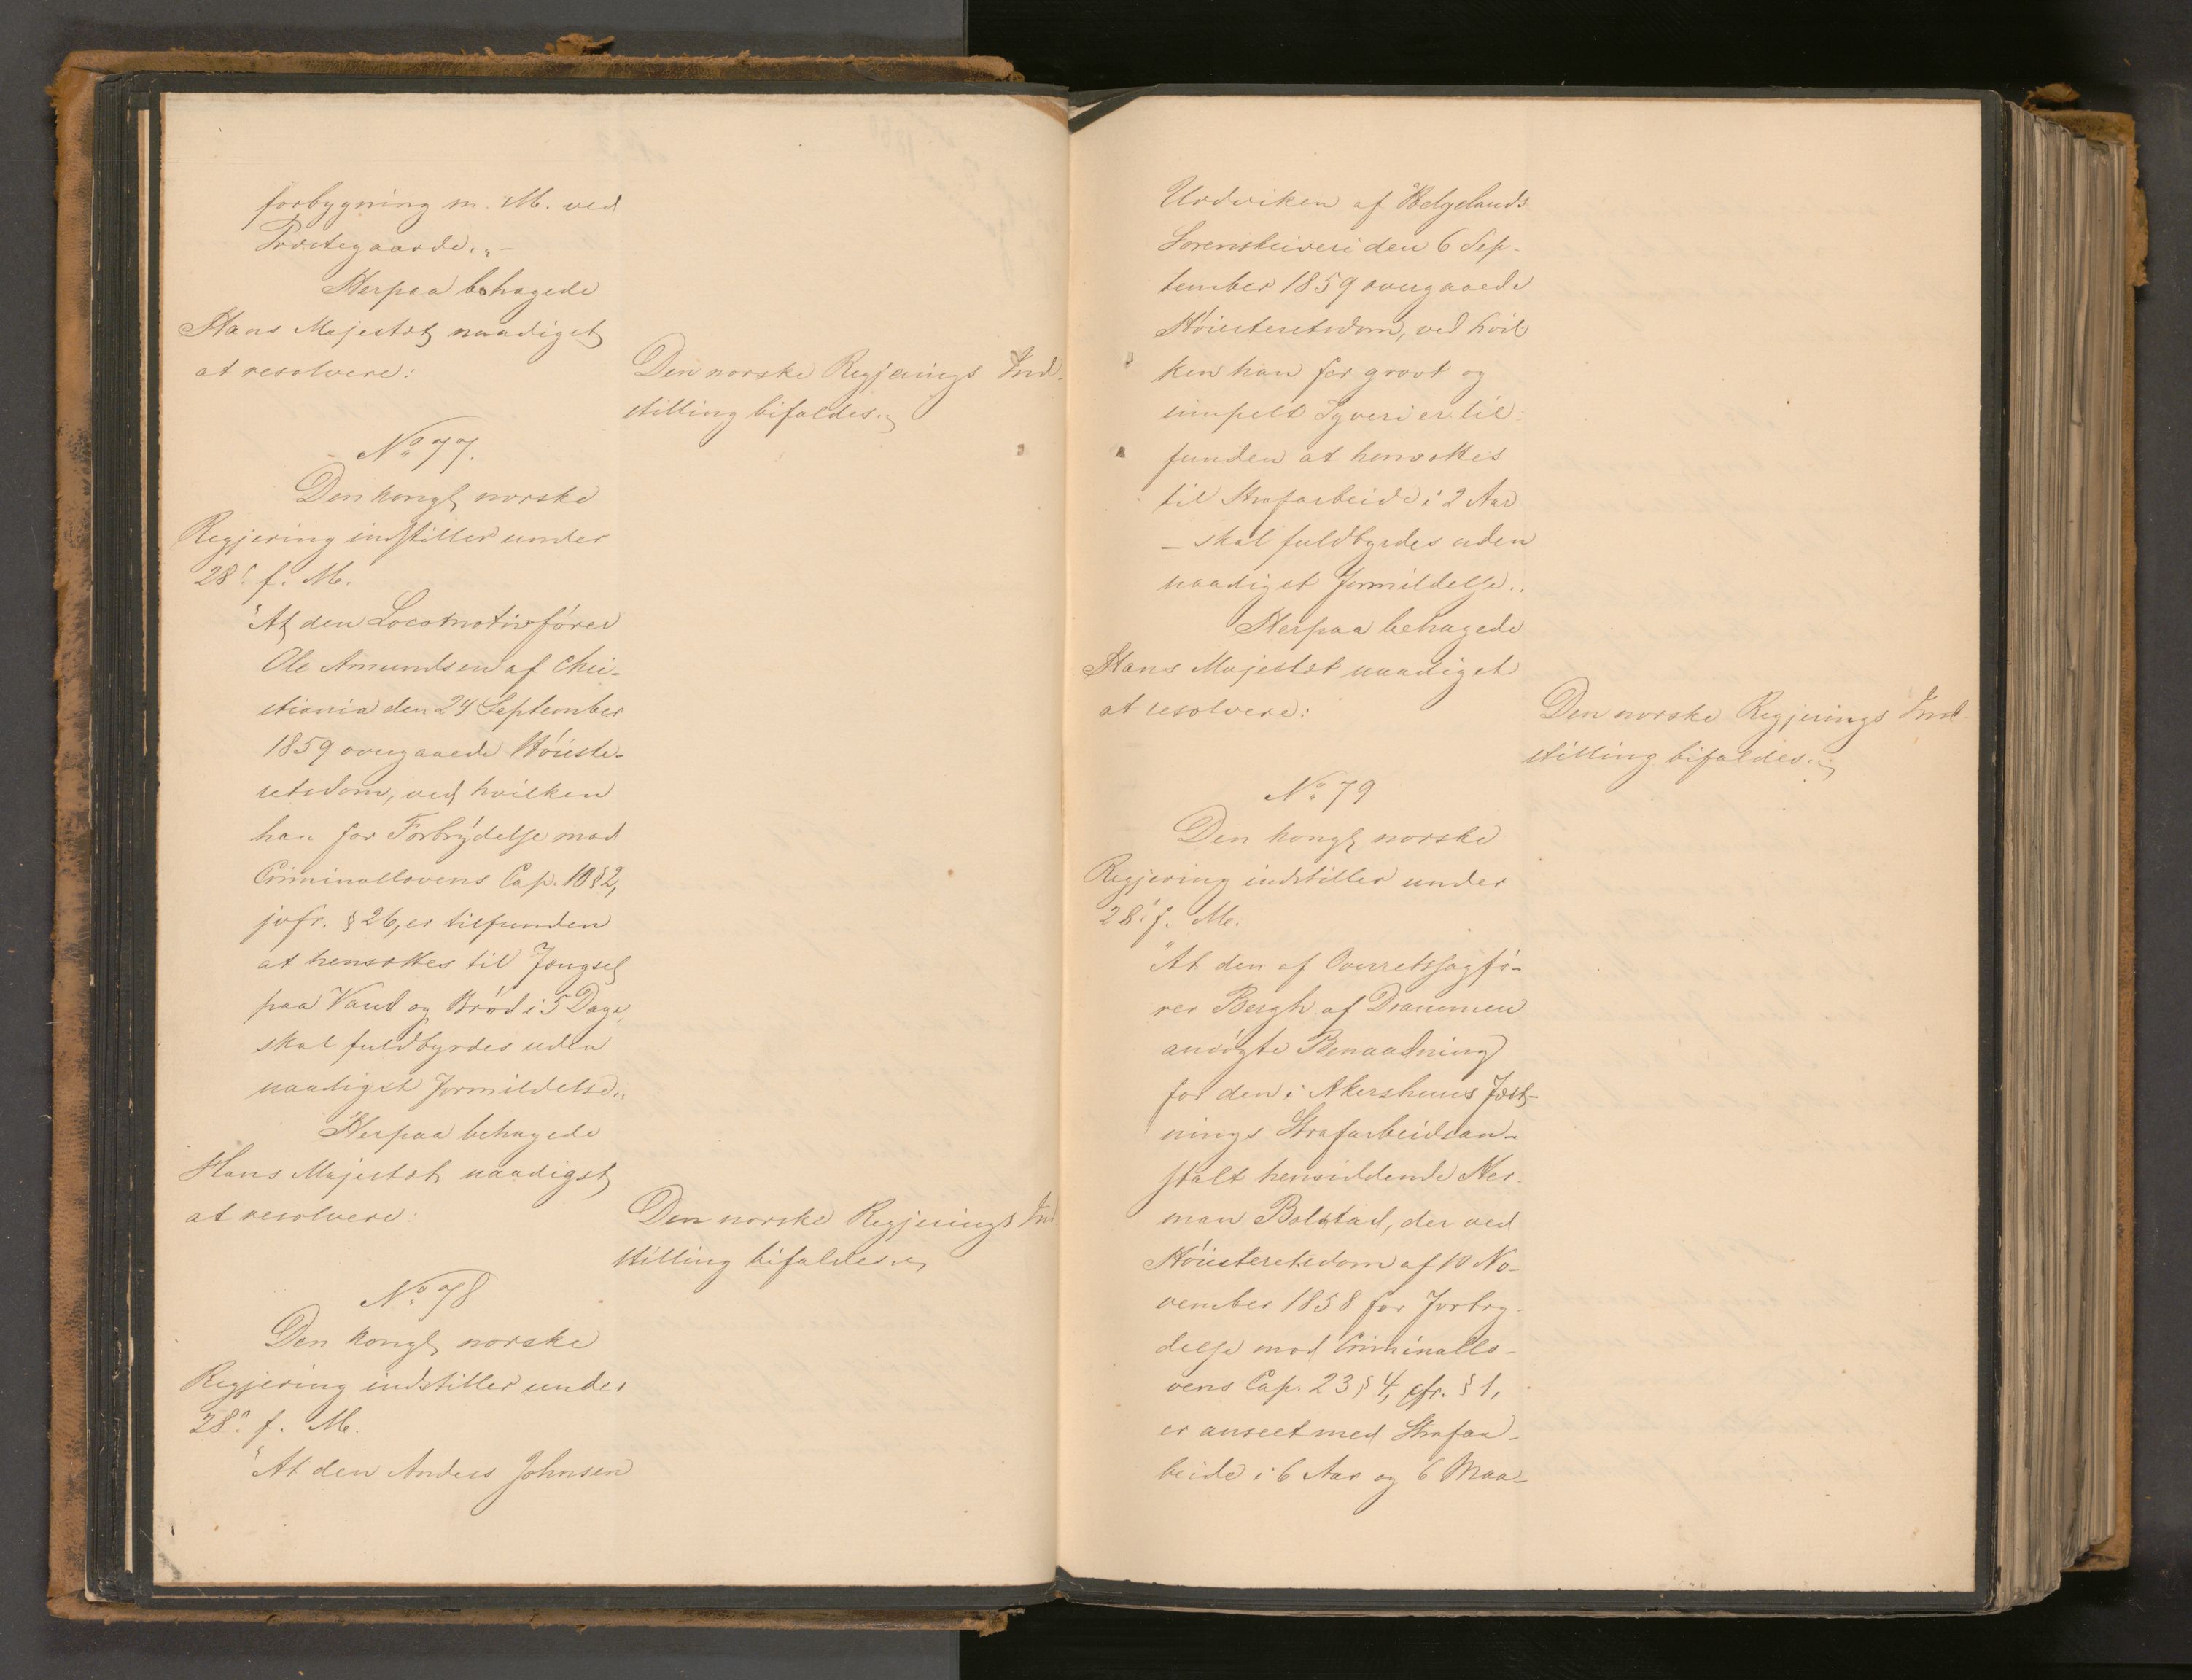 forbygning m. M. ved
Prestegaarde."-
Herpaa behagede
Hans Majestæt naadigst
at resolvere:
Den norske Regjerings Ind-
stilling bifaldes.
No 77.
Den kongl norske
Regjering indstiller under
28. f. M.
"At den Locomotivfører
Ole Amundsen af Chri-
stiania den 24 September
1859 overgaaede Høieste-
retsdom, ved hvilken
han for Forbrydelse mod
Criminallovens Cap. 10 § 2,
jvfr. § 26, er tilfunden
at hensættes til Fængsel
paa Vand og Brød i 5 Dage,
skal fuldbyrdes uden
naadigst Formildelse."
Herpaa behagede
Hans Majestæt naadigst
at resolvere:
Den norske Regjerings Ind
stilling bifaldes.
No 78
Den kongl norske
Regjering indstiller under
28. f. M.
"At den Anders Johnsen
Urdviken af Helgelands
Sorenskriveri den 6 Sep-
tember 1859 overgaaede
Høiesteretsdom, ved hvil
ken han for grovt og
simpelt Tyveri er til-
funden at hensættes
til Strafarbeide i 2 Aar
- skal fuldbyrdes uden
naadigst Formildelse."
Herpaa behagede
Hans Majestæt naadigst
at resolvere:
Den norske Regjerings Ind-
stilling bifaldes.
No 79
Den kongl norske
Regjering indstiller under
28. f. M.
"At den af Overretssagfø-
rer Bergh af Drammen
ansøgte Benaadning
for den i Akershuus Fæst-
nings Strafarbeidsan-
stalt hensiddende Her-
man Bolstad, der ved
Høiesteretsdom af 10 No-
vember 1858 for Forbry-
delse mod Criminallo-
vens Cap. 23 § 4, cfr. § 1,
er anseet med Strafar-
beide i 6 Aar og 6 Maa-